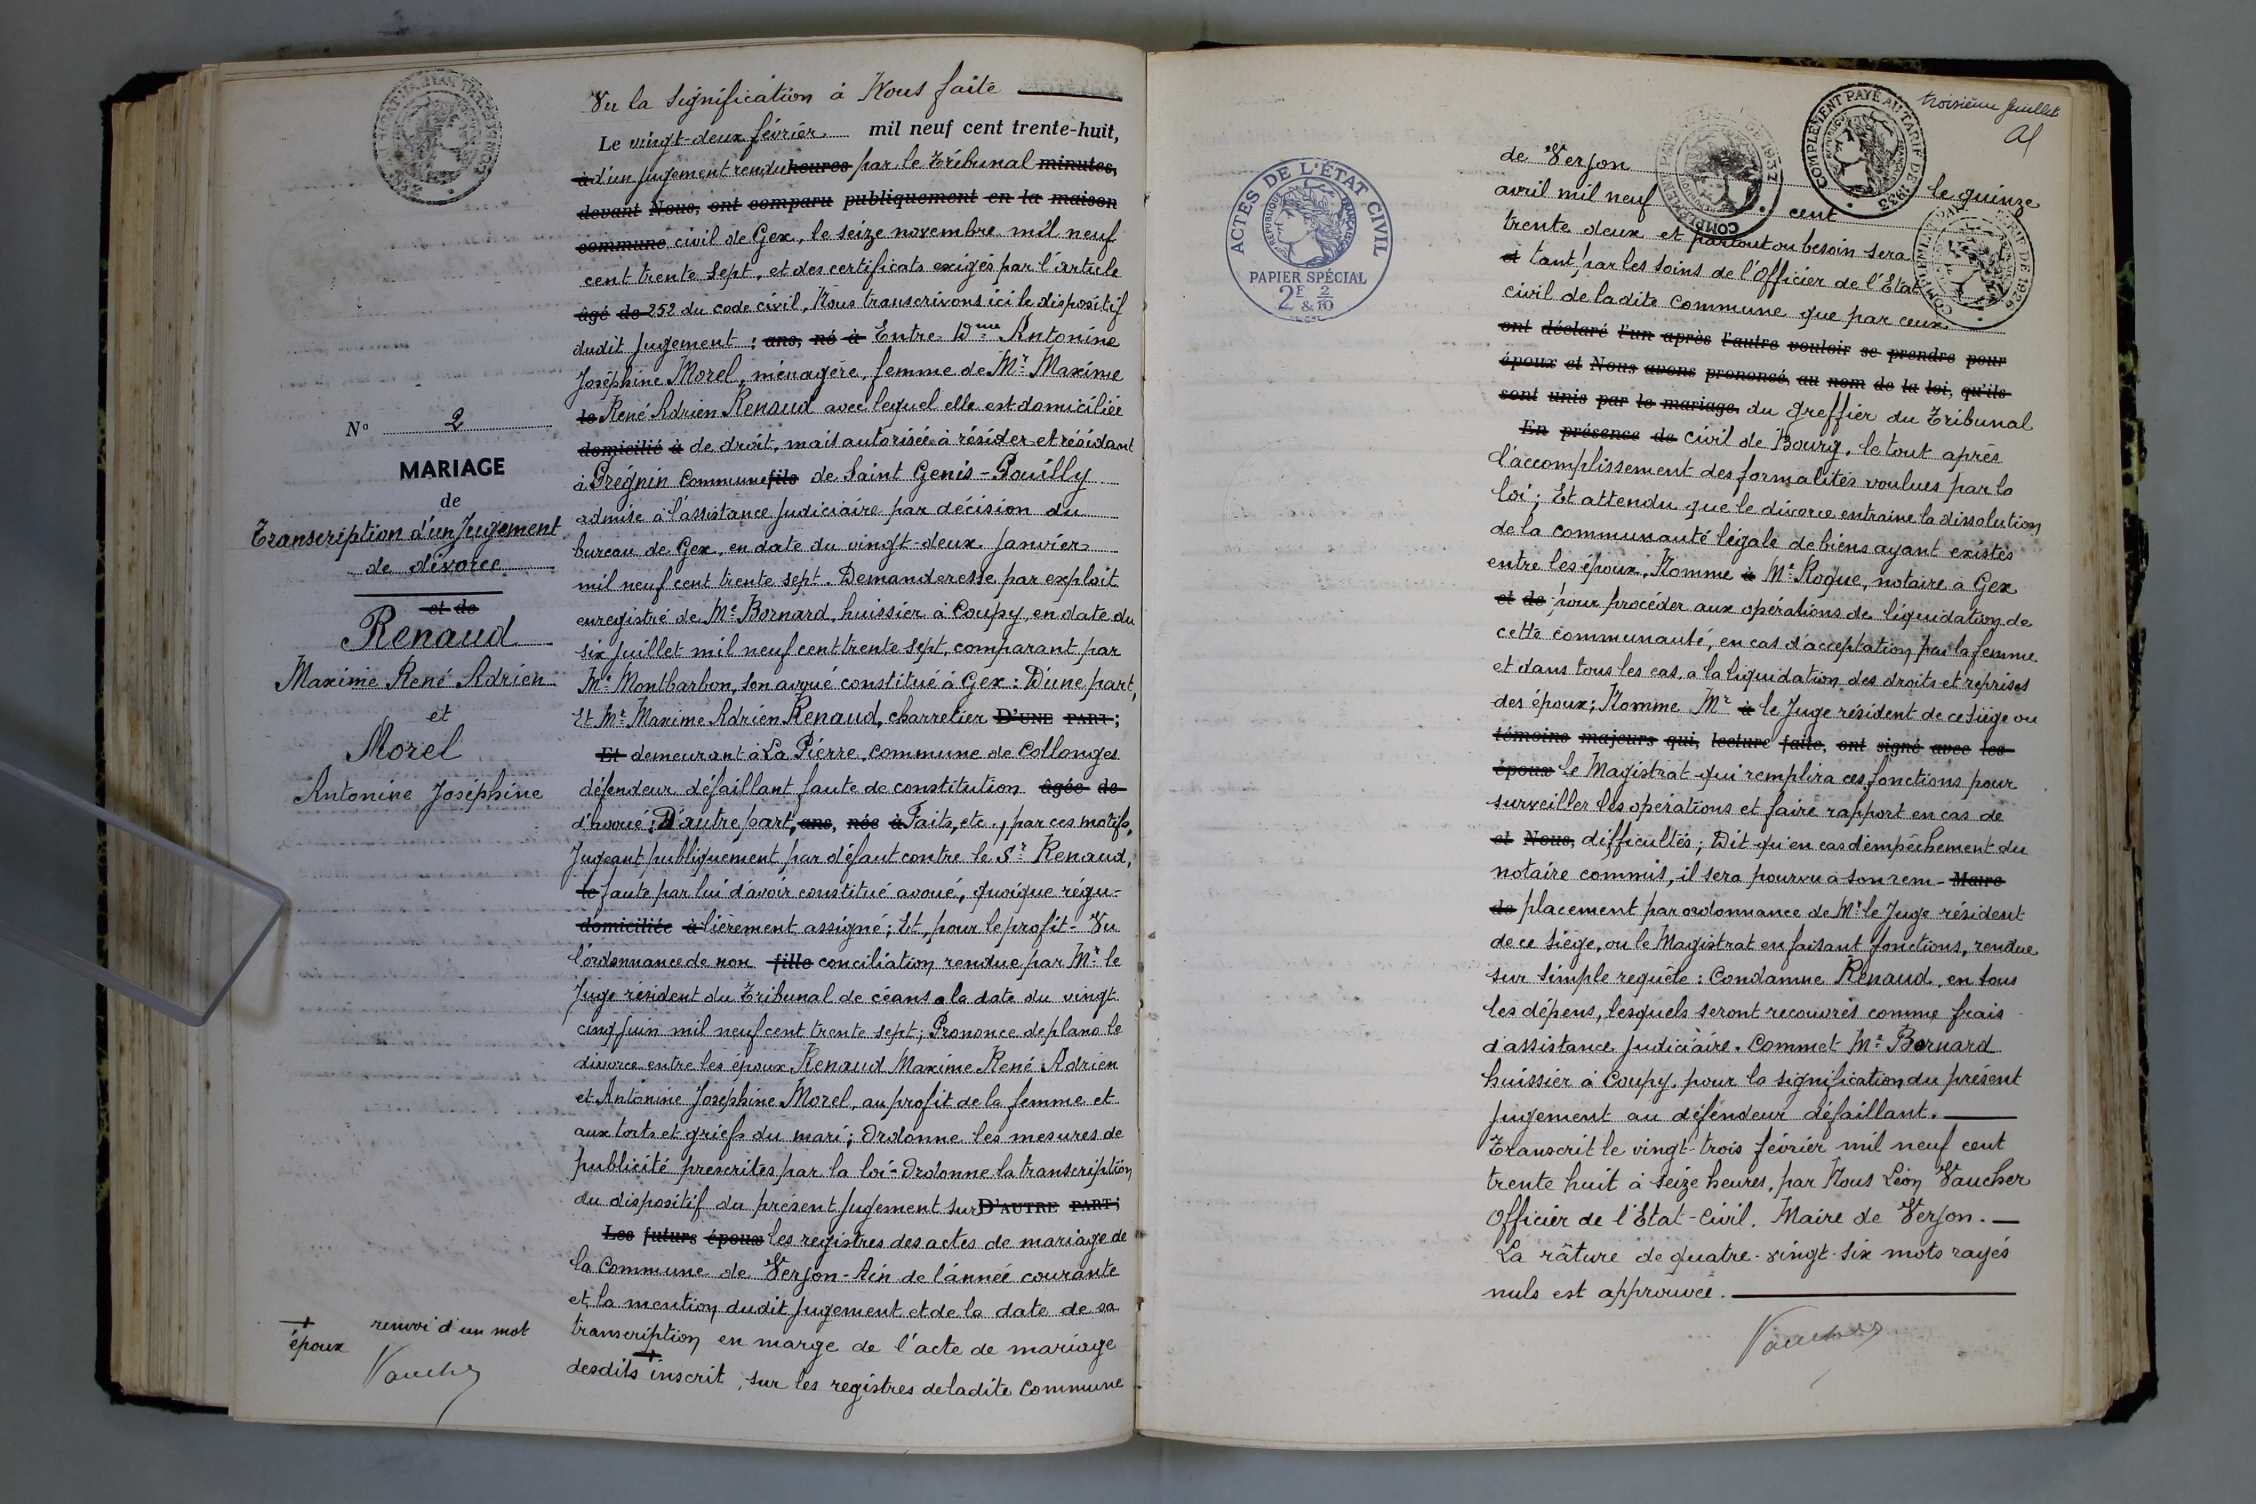 Vu la signification à Nous faite
Le vingt-deux février mil neuf cent trente-huit,
à d'un jugement rendu heures par le Tribunal minutes,
devant Nous, ont comparu publiquement en la maison
commune civil de Gex, le seize novembre mil neuf
cent trente sept, et des certificats exigés par l'article
âgé de 252 du code civil, Nous transcrivons ici le dispositif
dudit jugement : ans, né à Entre Dme Antonine
Joséphine Morel, ménagère, femme de Mr Maxime
le René Adrien Renaud avec lequel elle est domiciliée
domicilié à de droit, mais autorisée à résider et résidant
à Prégnin Commune fils de Saint Genis-Pouilly
admise à l'assistance judiciaire par décision du
bureau de Gex, en date du vingt-deux janvier
mil neuf cent trente sept. Demanderesse par exploit
enregistré de Me Bornard, huissier à Coupy, en date du
six juillet mil neuf cent trente sept, comparant par
Me Montbarbon, son avoué constitué à Gex : D'une part,
Et Mr Maxime Adrien Renaud, charretier D'UNE PART ;
Et demeurant à La Pierre, commune de Collonges
défendeur défaillant faute de constitution âgée de
d'avoué : D'autre part, ans, née à Faits, etc., par ces motifs,
Jugeant publiquement par défaut contre le Sr Renaud,
le faute par lui d'avoir constitué avoué, quoique régu-
domiciliée à lièrement assigné ; Et, pour le profit - Vu
l'ordonnance de non fille conciliation rendue par Mr le
Juge résident du Tribunal de céans a la date du vingt
cinq juin mil neuf cent trente sept ; Prononce de plano le
divorce entre les époux Renaud Maxime René Adrien
et Antonine Joséphine Morel, au profit de la femme et
aux torts et griefs du mari ; Ordonne les mesures de
publicité prescrites par la loi - Ordonne la transcription
du dispositif du présent jugement sur D'AUTRE PART ;
Les futurs époux les registres des actes de mariage de
la Commune de Verjon-Ain de l'année courante
et la mention dudit jugement et de la date de sa
transcription en marge de l'acte de mariage
desdits + inscrit, sur les registres de ladite Commune
No 2
MARIAGE
de
Transcription d'un Jugement
de divorce
et de
Renaud
Maxime René Adrien
et
Morel
Antonine Joséphine
+
époux
renvoi d'un mot
Vaucher
troisième feuillet
COMPLÉMENT PAYÉ AU TARIF DE 1933
ACTES DE L'ÉTAT CIVIL
RÉPUBLIQUE FRANÇAISE
PAPIER SPÉCIAL
2F & 2/10
de Verjon le quinze
avril mil neuf cent
trente deux et partout ou besoin sera
et tant par les soins de l'Officier de l'Etat
civil de ladite Commune que par ceux
ont déclaré l'un après l'autre vouloir se prendre pour
époux et Nous avons prononcé, au nom de la loi, qu'ils
sont unis par le mariage. du greffier du Tribunal
En présence de civil de Bourg, le tout après
l'accomplissement des formalités voulues par la
loi ; Et attendu que le divorce entraine la dissolution
de la communauté légale de biens ayant existés
entre les époux, Nomme à Me Rogue, notaire à Gex
et de pour procéder aux opérations de liquidation de
cette communauté, en cas d'acceptation par la femme
et dans tous les cas, a la liquidation des droits et reprises
des époux ; Nomme Mr à le Juge résident de ce siège ou
témoins majeurs qui, lecture faite, ont signé avec les
époux le Magistrat qui remplira ces fonctions pour
surveiller les opérations et faire rapport en cas de
et Nous, difficultés ; Dit qu'en cas d'empêchement du
notaire commis, il sera pourvu à son rem- Maire
de placement par ordonnance de Mr le Juge résident
de ce siège, ou le Magistrat en faisant fonctions, rendue
sur simple requête : Condamne Renaud, en tous
les dépens, lesquels seront recouvrés comme frais
d'assistance judiciaire. Commet Me Bornard
huissier à Coupy, pour la signification du présent
jugement au défendeur défaillant.
Transcrit le vingt-trois février mil neuf cent
trente huit à seize heures, par Nous Léon Vaucher
Officier de l'Etat-Civil, Maire de Verjon.
La râture de quatre-vingt-six mots rayés
nuls est approuvée.
Vaucher